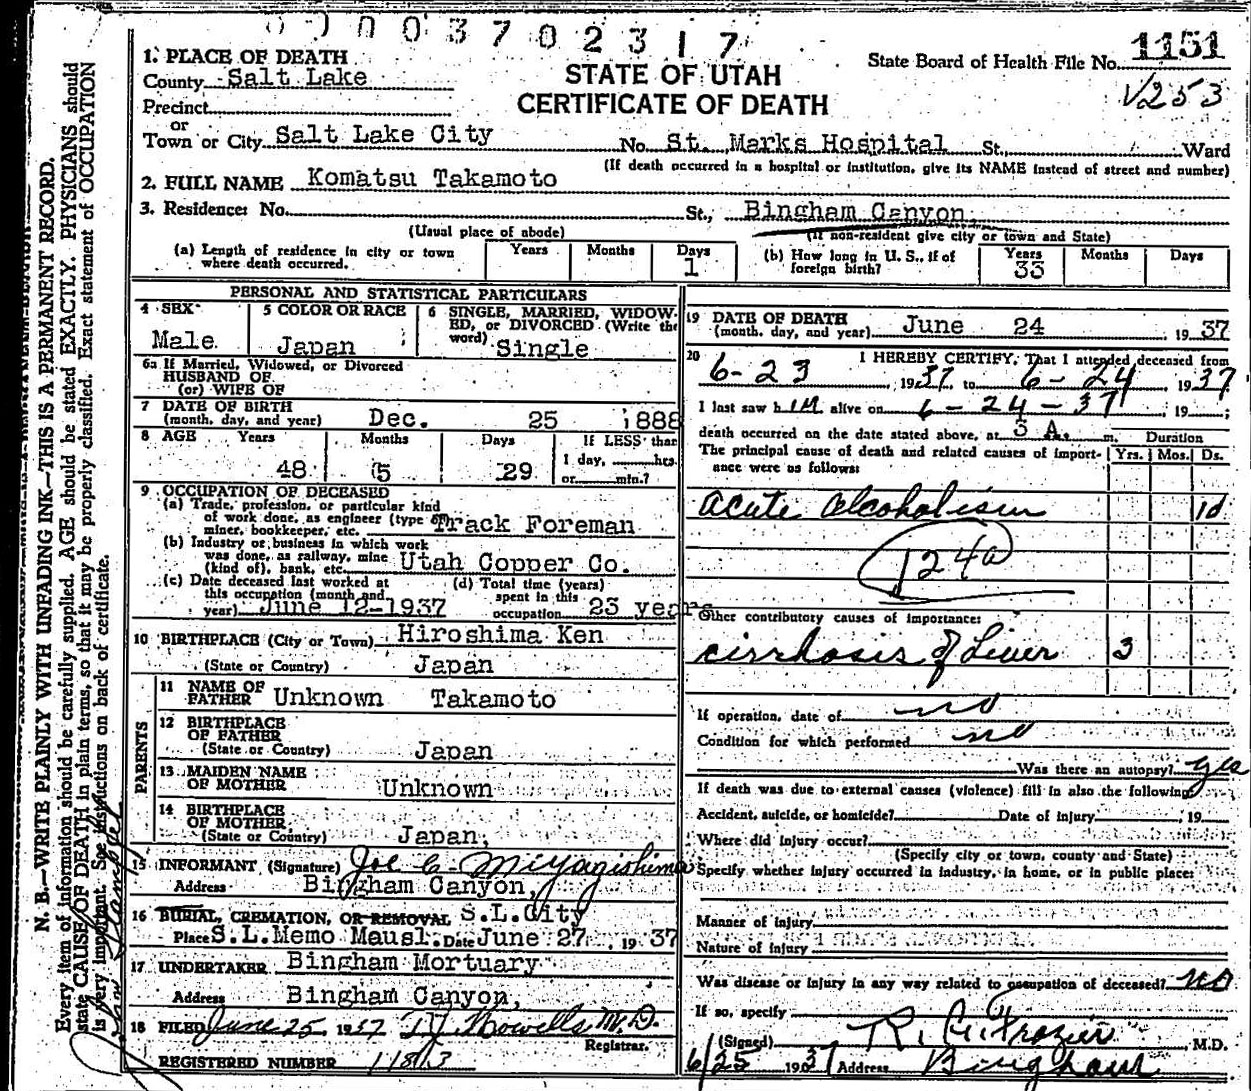 0 0 0 3 7 0 2 3 1 7
1151
State Board of Health File No.
V253
STATE OF UTAH
CERTIFICATE OF DEATH
1. PLACE OF DEATH
County Salt Lake
Precinct
or
Town or City Salt Lake City No. St. Marks Hospital St., Ward
(If death occurred in a hospital or institution, give its NAME instead of street and number)
2. FULL NAME Komatsu Takamoto
3. Residence: No. St., Bingham Canyon,
(Usual place of abode) (If non-resident give city or town and State)
(a) Length of residence in city or town where death occurred. Years Months Days 1
(b) How long in U. S., if of foreign birth? Years 33 Months Days
PERSONAL AND STATISTICAL PARTICULARS
4 SEX Male
5 COLOR OR RACE Japan
6 SINGLE, MARRIED, WIDOWED, or DIVORCED (Write the word) Single
6a If Married, Widowed, or Divorced
HUSBAND OF
(or) WIFE OF
7 DATE OF BIRTH
(month, day, and year) Dec. 25 1888
8 AGE Years 48 Months 5 Days 29 If LESS than 1 day, hrs. or min.?
9 OCCUPATION OF DECEASED
(a) Trade, profession, or particular kind
of work done, as engineer (type of
miner, bookkeeper, etc. Track Foreman
(b) Industry or business in which work
was done, as railway, mine
(kind of), bank, etc. Utah Copper Co.
(c) Date deceased last worked at
this occupation (month and
year) June 12-1937
(d) Total time (years)
spent in this
occupation 23 years
10 BIRTHPLACE (City or Town) Hiroshima Ken
(State or Country) Japan
PARENTS
11 NAME OF
FATHER Unknown Takamoto
12 BIRTHPLACE
OF FATHER
(State or Country) Japan
13 MAIDEN NAME
OF MOTHER Unknown
14 BIRTHPLACE
OF MOTHER
(State or Country) Japan,
15 INFORMANT (Signature) Joe C. Miyagishima
Address Bingham Canyon,
16 BURIAL, CREMATION, OR REMOVAL S.L.City
Place S.L.Memo Mausl. Date June 27, 1937
17 UNDERTAKER Bingham Mortuary
Address Bingham Canyon,
18 FILED June 25 1937 Howells M.D.
Registrar.
REGISTERED NUMBER
19 DATE OF DEATH
(month, day, and year) June 24 1937
20 I HEREBY CERTIFY, That I attended deceased from
6-23, 1937 to 6-24, 1937
I last saw him alive on 6-24-37, 19 ;
death occurred on the date stated above, at 3 A. m.
The principal cause of death and related causes of importance were as follows:
Duration
Yrs. Mos. Ds.
acute alcoholism 1d
124a
Other contributory causes of importance:
cirrhosis of Liver 3
If operation, date of no
Condition for which performed no
Was there an autopsy? yes
If death was due to external causes (violence) fill in also the following:
Accident, suicide, or homicide? Date of injury , 19
Where did injury occur?
(Specify city or town, county and State)
Specify whether injury occurred in industry, in home, or in public place:
Manner of injury
Nature of injury
Was disease or injury in any way related to occupation of deceased? no
If so, specify
(Signed) R. G. Frazier, M.D.
6/25 1937 Address Bingham
N. B.—WRITE PLAINLY WITH UNFADING INK—THIS IS A PERMANENT RECORD.
Every item of information should be carefully supplied. AGE should be stated EXACTLY. PHYSICIANS should
state CAUSE OF DEATH in plain terms, so that it may be properly classified. Exact statement of OCCUPATION
is very important. See instructions on back of certificate.